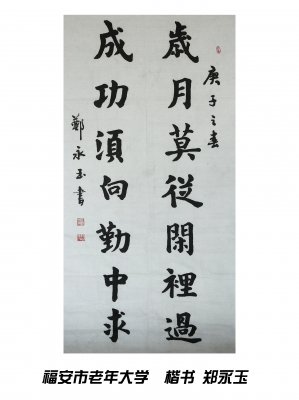 庚子之春
歳月莫從閑裡過
成功須向勤中求
鄭永玉書
福安市老年大学 楷书 郑永玉